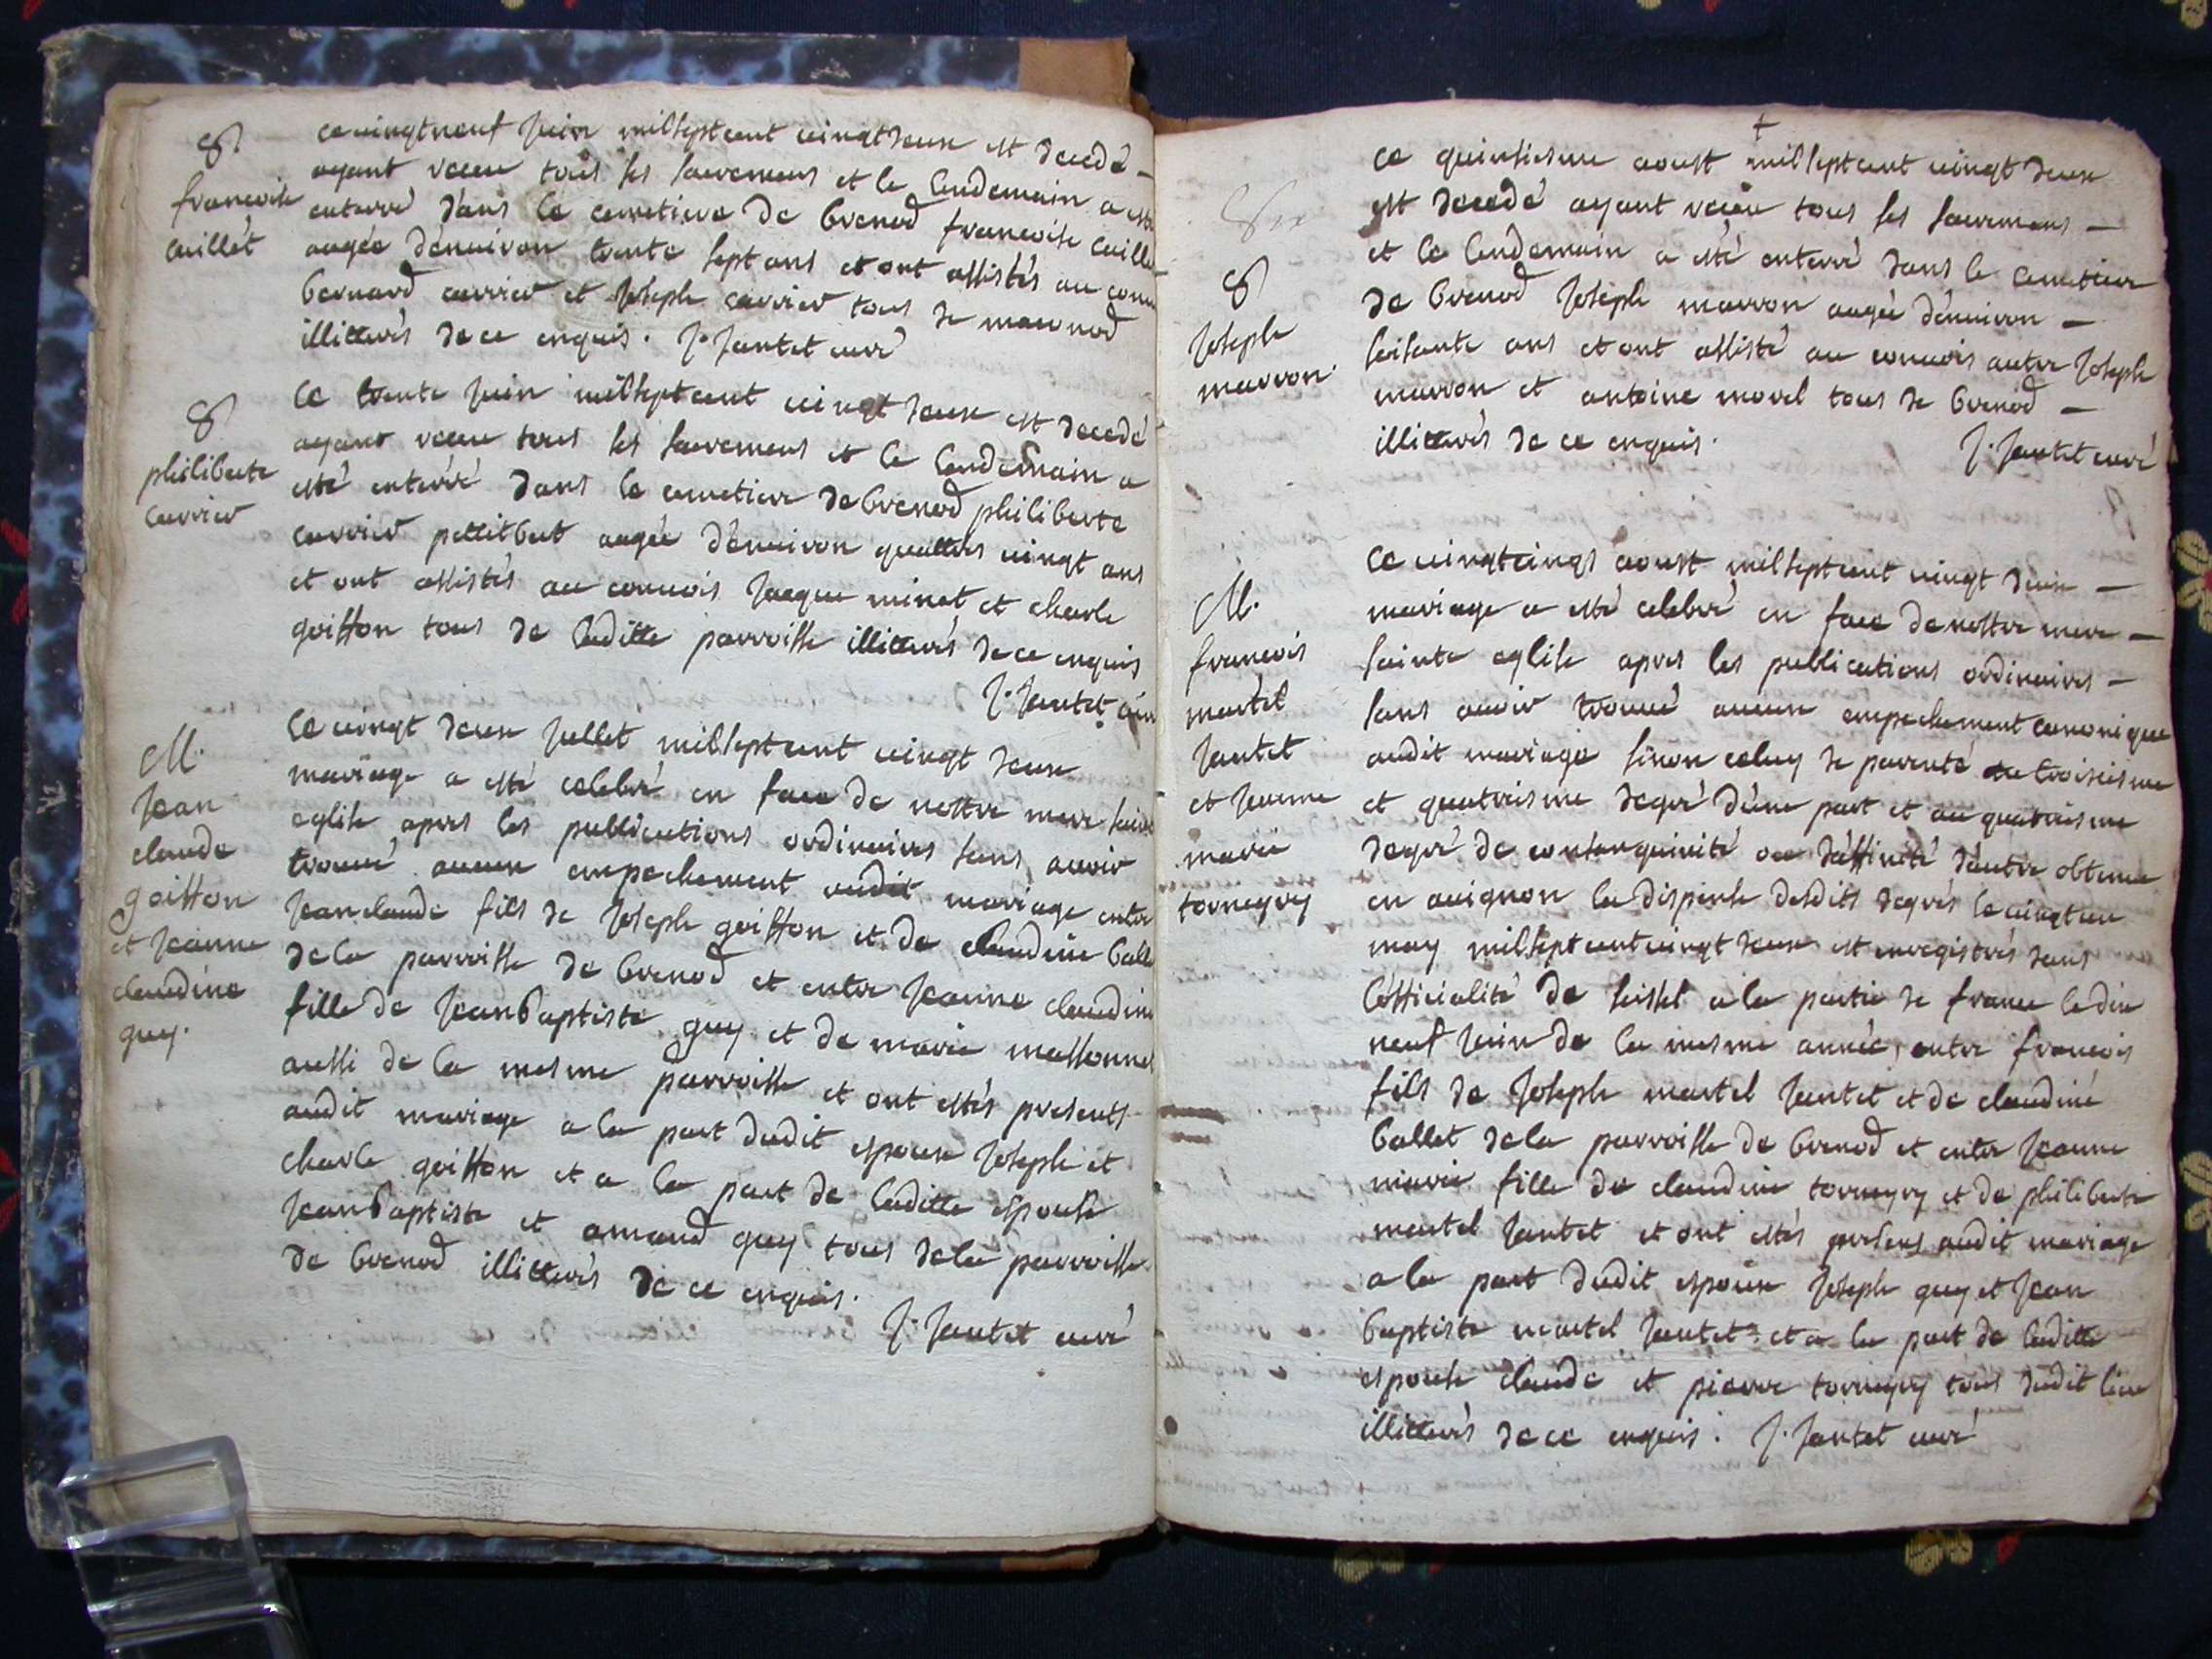 8
francoise
cuillet
ce vingt neuf juin mil sept cent vingt deux est decedé
ayant receu tous les sacremens et le lendemain a esté
enterré dans le cemetiere de brenod francoise cuillet
aagée d'environ trente sept ans et ont assistés au
bernard carrier et joseph carrier tous de maconod
illitterés de ce enquis. J. Jantet curé
8
philiberte
carrier
ce trente juin mil sept cent vingt deux est decedé
ayant receu tous les sacremens et le lendemain a
esté enterré dans le cemetiere de brenod philiberte
carrier pettitbut aagée d'environ quattres vingt ans
et ont assistés au convois jacque minet et charle
goiffon tous de laditte parroisse illitterés de ce enquis
J. Jantet
M.
jean
claude
goiffon
et jeanne
claudine
guy.
ce vingt deux jullet mil sept cent vingt deux
mariage a esté celebré en face de nostre mere sainte
eglise apres les publications ordinaires sans avoir
trouvé aucun empechement audit mariage entre
jean claude fils de joseph goiffon et de claudine ballet
de la parroisse de brenod et entre jeanne claudine
fille de jean baptiste guy et de marie massonnet
aussi de la mesme parroisse et ont estés presents
audit mariage a la part dudit espoux joseph et
charle goiffon et a la part de laditte espouse
jean baptiste et amand guy tous de la parroisse
de brenod illitterés de ce enquis.
J. Jantet curé
8
joseph
marron.
ce quinsiesme aoust mil sept cent vingt deux
est decedé ayant receu tous les sacremens
et le lendemain a esté enterré dans le cemetiere
de brenod joseph marron aagée d'environ
soisante ans et ont assisté au convois autre joseph
marron et antoine morel tous de brenod
illitterés de ce enquis.
J. Jantet curé
M.
francois
martel
jantet
et jeanne
marie
torneyry
ce vingt cinqs aoust mil sept cent vingt deux
mariage a esté celebré en face de nostre mere
sainte eglise apres les publications ordinaires
sans avoir trouvé aucun empechement canonique
audit mariage sinon celuy de parenté au troisiesme
et quatriesme degré d'une part et au quatriesme
degré de consanguinité ou d'affinité d'autre obtenue
en avignon la dispense desdits degrés le vingt un
may mil sept cent vingt deux est enregistrés dans
l'officialité de seissel a la partie de france le dix
neuf juin de la mesme année, entre francois
fils de joseph martel jantet et de claudine
ballet de la parroisse de brenod et entre jeanne
marie fille de claudine torneyry et de philiberte
martel jantet et ont estés presens audit mariage
a la part dudit espoux joseph guy et jean
baptiste martel jantet et a la part de laditte
espouse claude et pierre torneyry tous dudit lieu
illitterés de ce enquis. J. Jantet curé